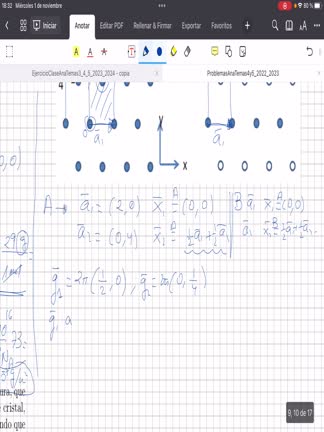 18:32 Miércoles 1 de noviembre
80 %
Iniciar Anotar Editar PDF Rellenar & Firmar Exportar Favoritos
EjercicioClaseAnaTemas3_4_5_2023_2024 - copia
ProblemasAnaTemas4y5_2022_2023
4
ā₁ ā₁
Y
X
,0)
A → ā₁ = (2,0) x̄₁^A = (0,0) B ā₁ x̄₁^B = (0,0)
ā₂ = (0,4) x̄₂^A = ½ā₁ + ½ā₂
ḡ₁ = 2π(½, 0), ḡ₂ = 2π(0, ¼)
16
73
ḡ₁ a
ura, que
cristal,
ndo que
9, 10 de 17